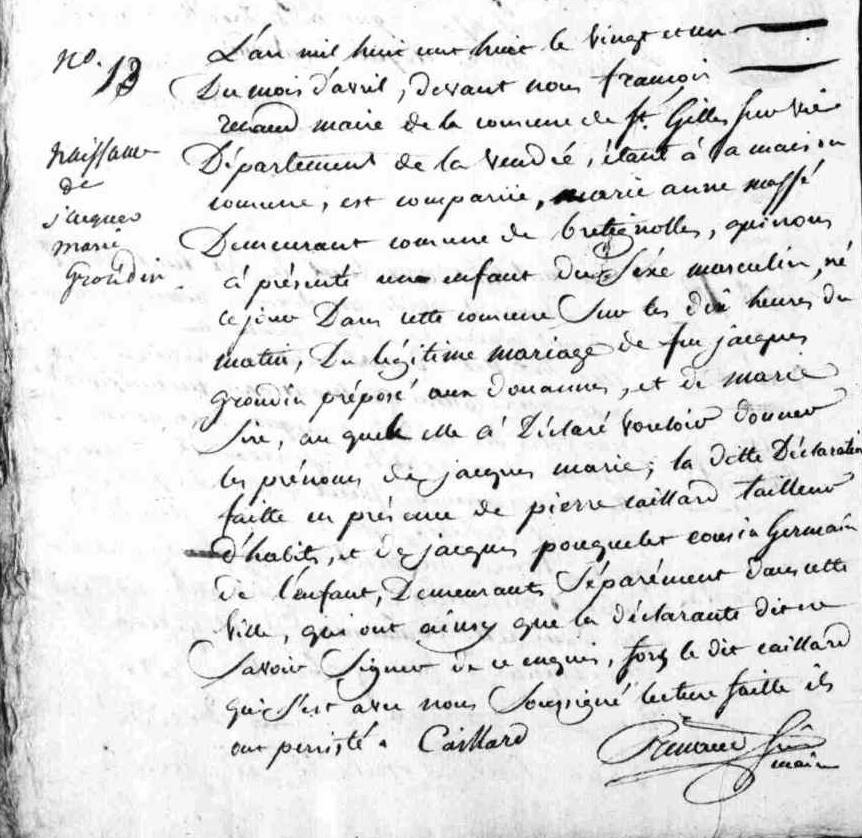 no. 13
naissance
de
jacques
marie
Grondin
L'an mil huit cent huit le vingt et un
Du mois d'avril, devant nous françois
renaud maire de la comune de st. Gilles sur vie
Département de la vendée, étant à la maison
comune, est comparüe, marie anne massé
Demeurant comune de bretignolles, qui nous
à présenté un enfant du Séxe masculin, né
ce jour Dans cette comune Sur les dix heures du
matin, Du légitime mariage de feu jacques
grondin préposé aux douannes, et de marie
Sire, au quel elle à Déclaré vouloir donner
les prénoms de jacques marie; la ditte Déclaration
faitte en présence de pierre caillard tailleur
d'habits, et de jacques pouquelet cousin Germain
de l'enfant, Demeurants Séparément dans cette
ville, qui ont ainsy que la déclarante dit ne
Savoir Signer de ce enquis, fors le dit caillard
qui s'est avec nous Soussigné lecture faitte ils
ont persisté. Caillard
Renaud
maire